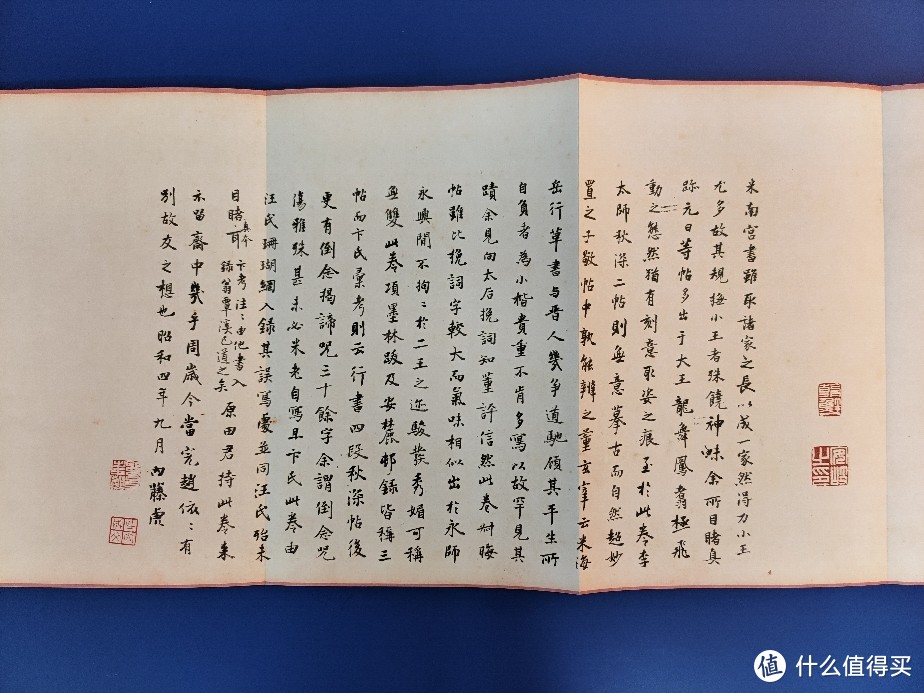 米南宮書雖取諸家之長以成一家然得力小王
尤多故其規撫小王者殊饒神味余所目睹真
跡元日等帖多出于大王龍舞鳳翥極飛
動之態然猶有刻意取姿之痕至於此卷李
太師秋深二帖則無意摹古而自然超妙
置之子敬帖中孰能辨之董玄宰云米海
岳行草書与晉人幾爭道馳顧其平生所
自負者為小楷貴重不肯多寫以故罕見其
蹟余見向太后挽詞知董許信然此卷叔晦
帖雖比挽詞字較大而氣味相似出於永師
永興間不拘〻於二王之迹駿發秀媚可稱
無雙此卷項墨林跋及安麓邨錄皆稱三
帖而卞氏彙考則云行書四段秋深帖後
更有倒念揭諦咒三十餘字余謂倒念咒
傷雅殊甚未必米老自寫且卞氏此卷由
汪氏珊瑚網入錄其誤寫處並同汪氏殆未
目睹真卞考注〻由他書入錄翁覃溪已道之矣原田君持此卷來
示留齋中幾乎周歲今當完趙依〻有
別故友之想也昭和四年九月內藤虎
值 什么值得买